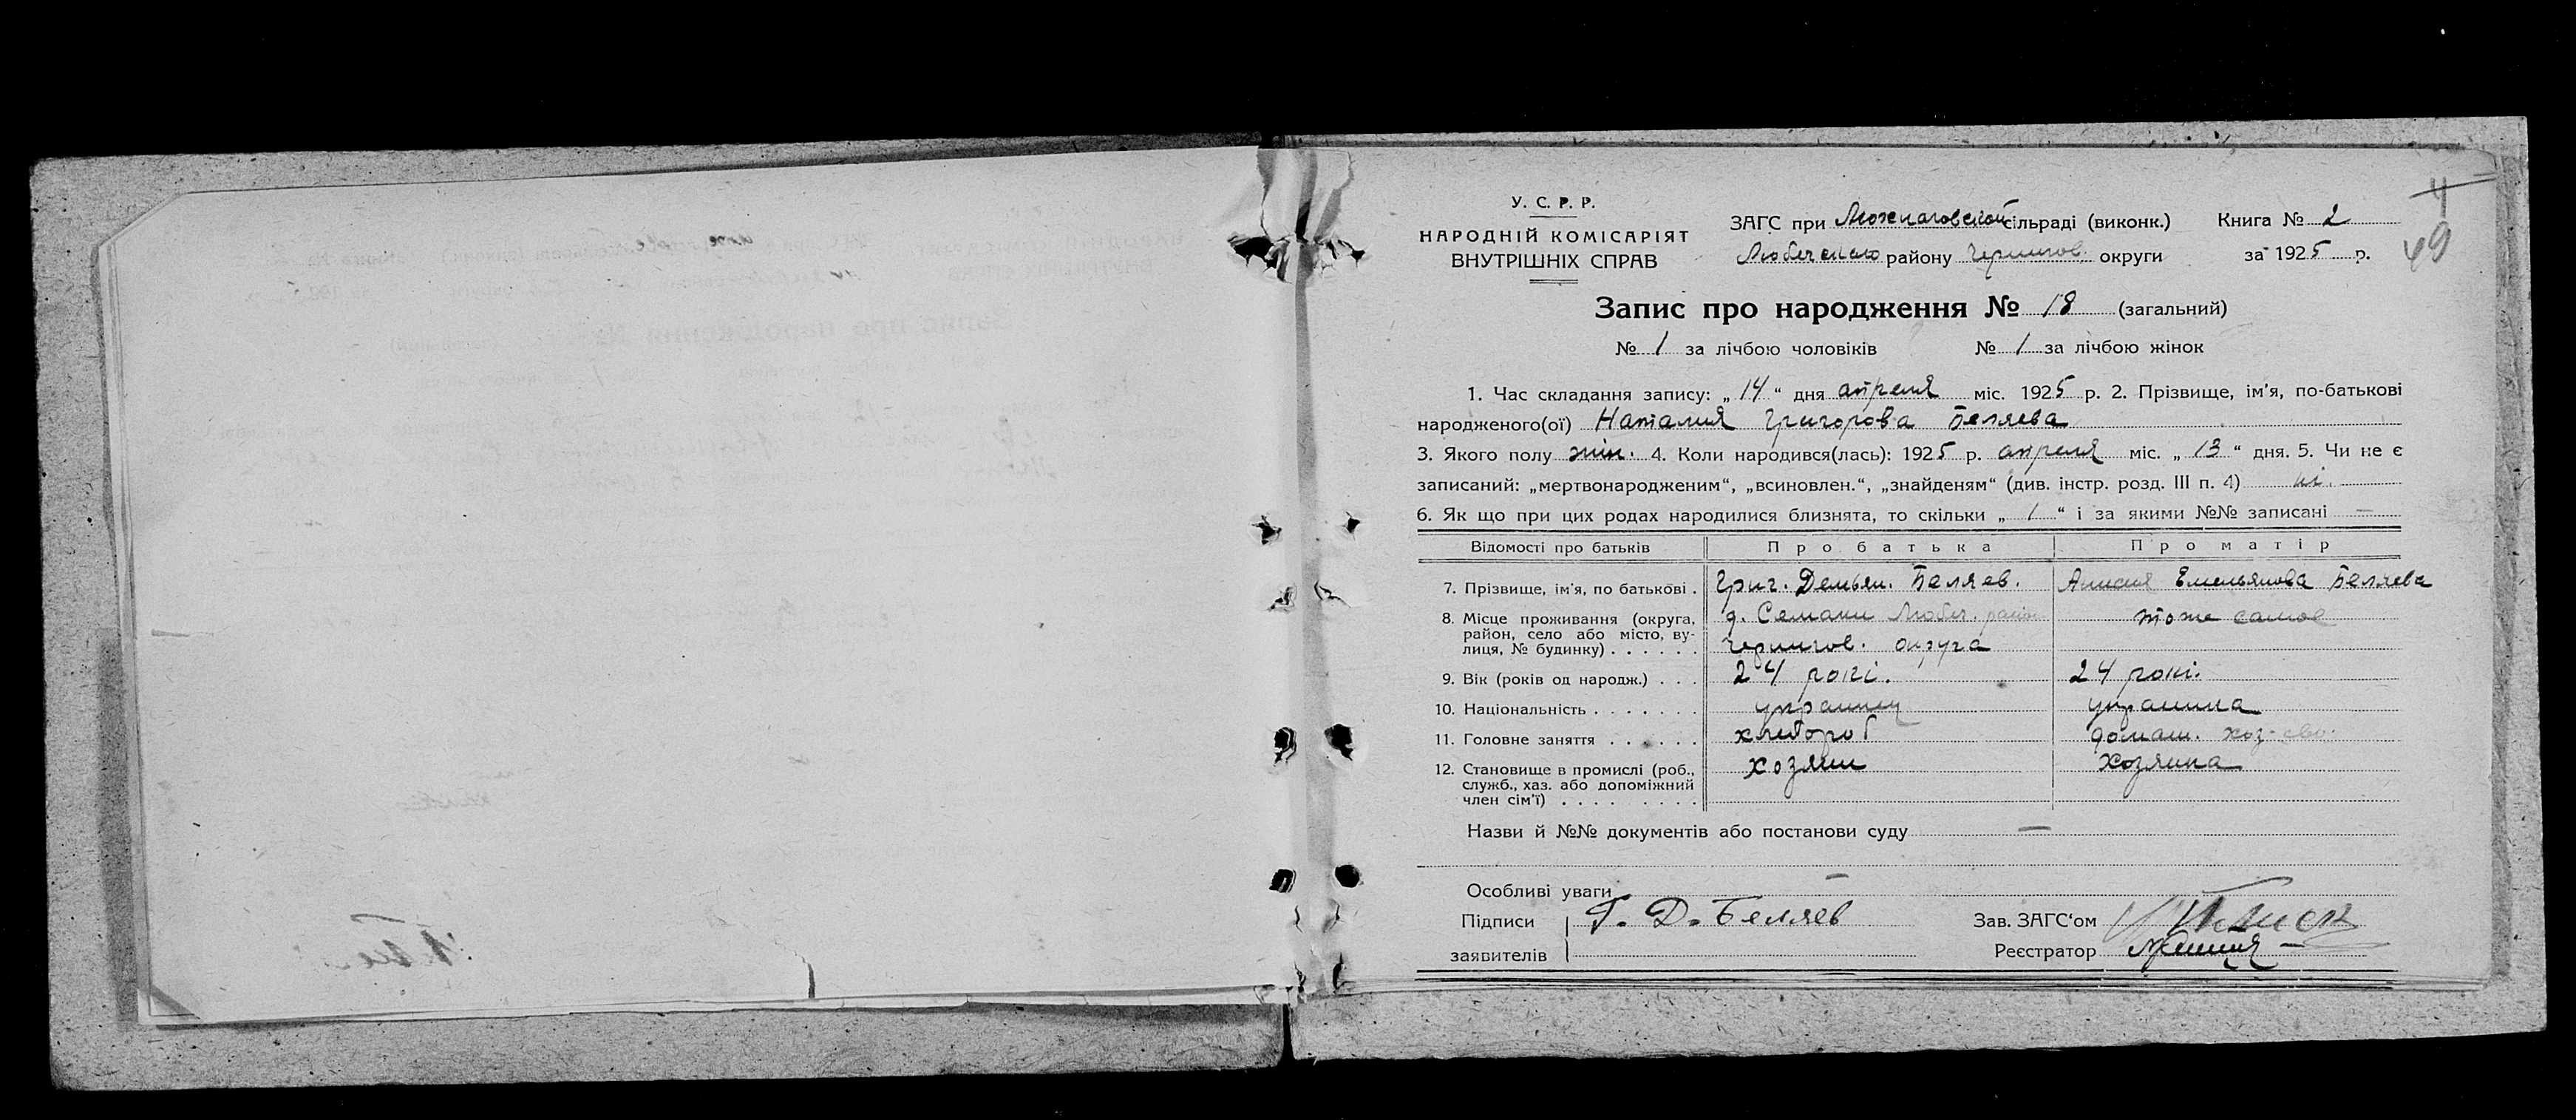 У. С. Р. Р.
НАРОДНІЙ КОМІСАРІЯТ
ВНУТРІШНІХ СПРАВ
ЗАГС при сільраді (виконк.) Книга № 2
Любечского району Чернигов. округи за 1925 р.
4
49
Запис про народження № 18 (загальний)
№ 1 за лічбою чоловіків № 1 за лічбою жінок
1. Час складання запису: „14“ дня апреля міс. 1925 р. 2. Прізвище, ім'я, по-батькові
народженого(ої) Наталия Григорова Беляева
3. Якого полу жін. 4. Коли народився(лась): 1925 р. апреля міс. „13“ дня. 5. Чи не є
записаний: „мертвонародженим“, „всиновлен.“, „знайденям“ (див. інстр. розд. III п. 4) ні.
6. Як що при цих родах народилися близнята, то скільки „1“ і за якими №№ записані —
Відомості про батьків Про батька Про матір
7. Прізвище, ім'я, по батькові . Григ. Демьян. Беляев. Емельянова Беляева
8. Місце проживання (округа, д. Семаки Любеч. район тоже самое
район, село або місто, ву-
лиця, № будинку) . . . . . . Чернигов. округа
9. Вік (років од народж.) . . . 24 рокі. 24 рокі.
10. Національність . . . . . . . украинец украинка
11. Головне заняття . . . . . . хлебороб домаш. хоз-во.
12. Становище в промислі (роб., хозяин хозяика
служб., хаз. або допоміжний
член сім'ї) . . . . . . . . .
Назви й №№ документів або постанови суду —
Особливі уваги —
Підписи Г. Д. Беляев Зав. ЗАГС'ом
заявителів Реєстратор